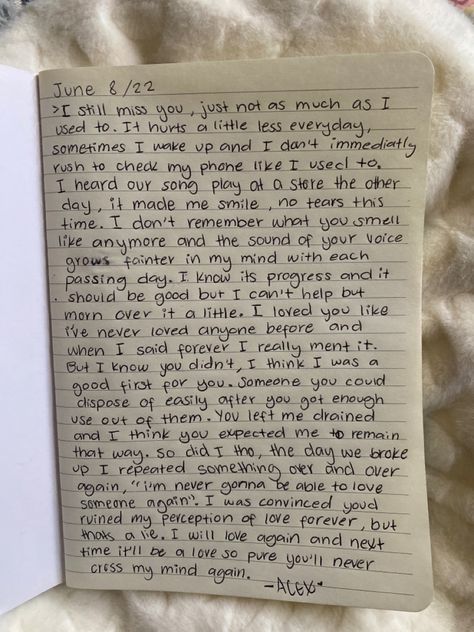 June 8/22
>I still miss you, just not as much as I
used to. It hurts a little less everyday,
sometimes I wake up and I don't immediatly
rush to check my phone like I used to.
I heard our song play at a store the other
day, it made me smile, no tears this
time. I don't remember what you smell
like anymore and the sound of your voice
grows fainter in my mind with each
passing day. I know its progress and it
should be good but I can't help but
morn over it a little. I loved you like
i've never loved anyone before and
when I said forever I really ment it.
But I know you didn't, I think I was a
good first for you. Someone you could
dispose of easily after you got enough
use out of them. You left me drained
and I think you expected me to remain
that way. So did I tho, the day we broke
up I repeated something over and over
again, "i'm never gonna be able to love
someone again". I was convinced youd
ruined my perception of love forever, but
thats a lie. I will love again and next
time it'll be a love so pure you'll never
cross my mind again.
-ALEX